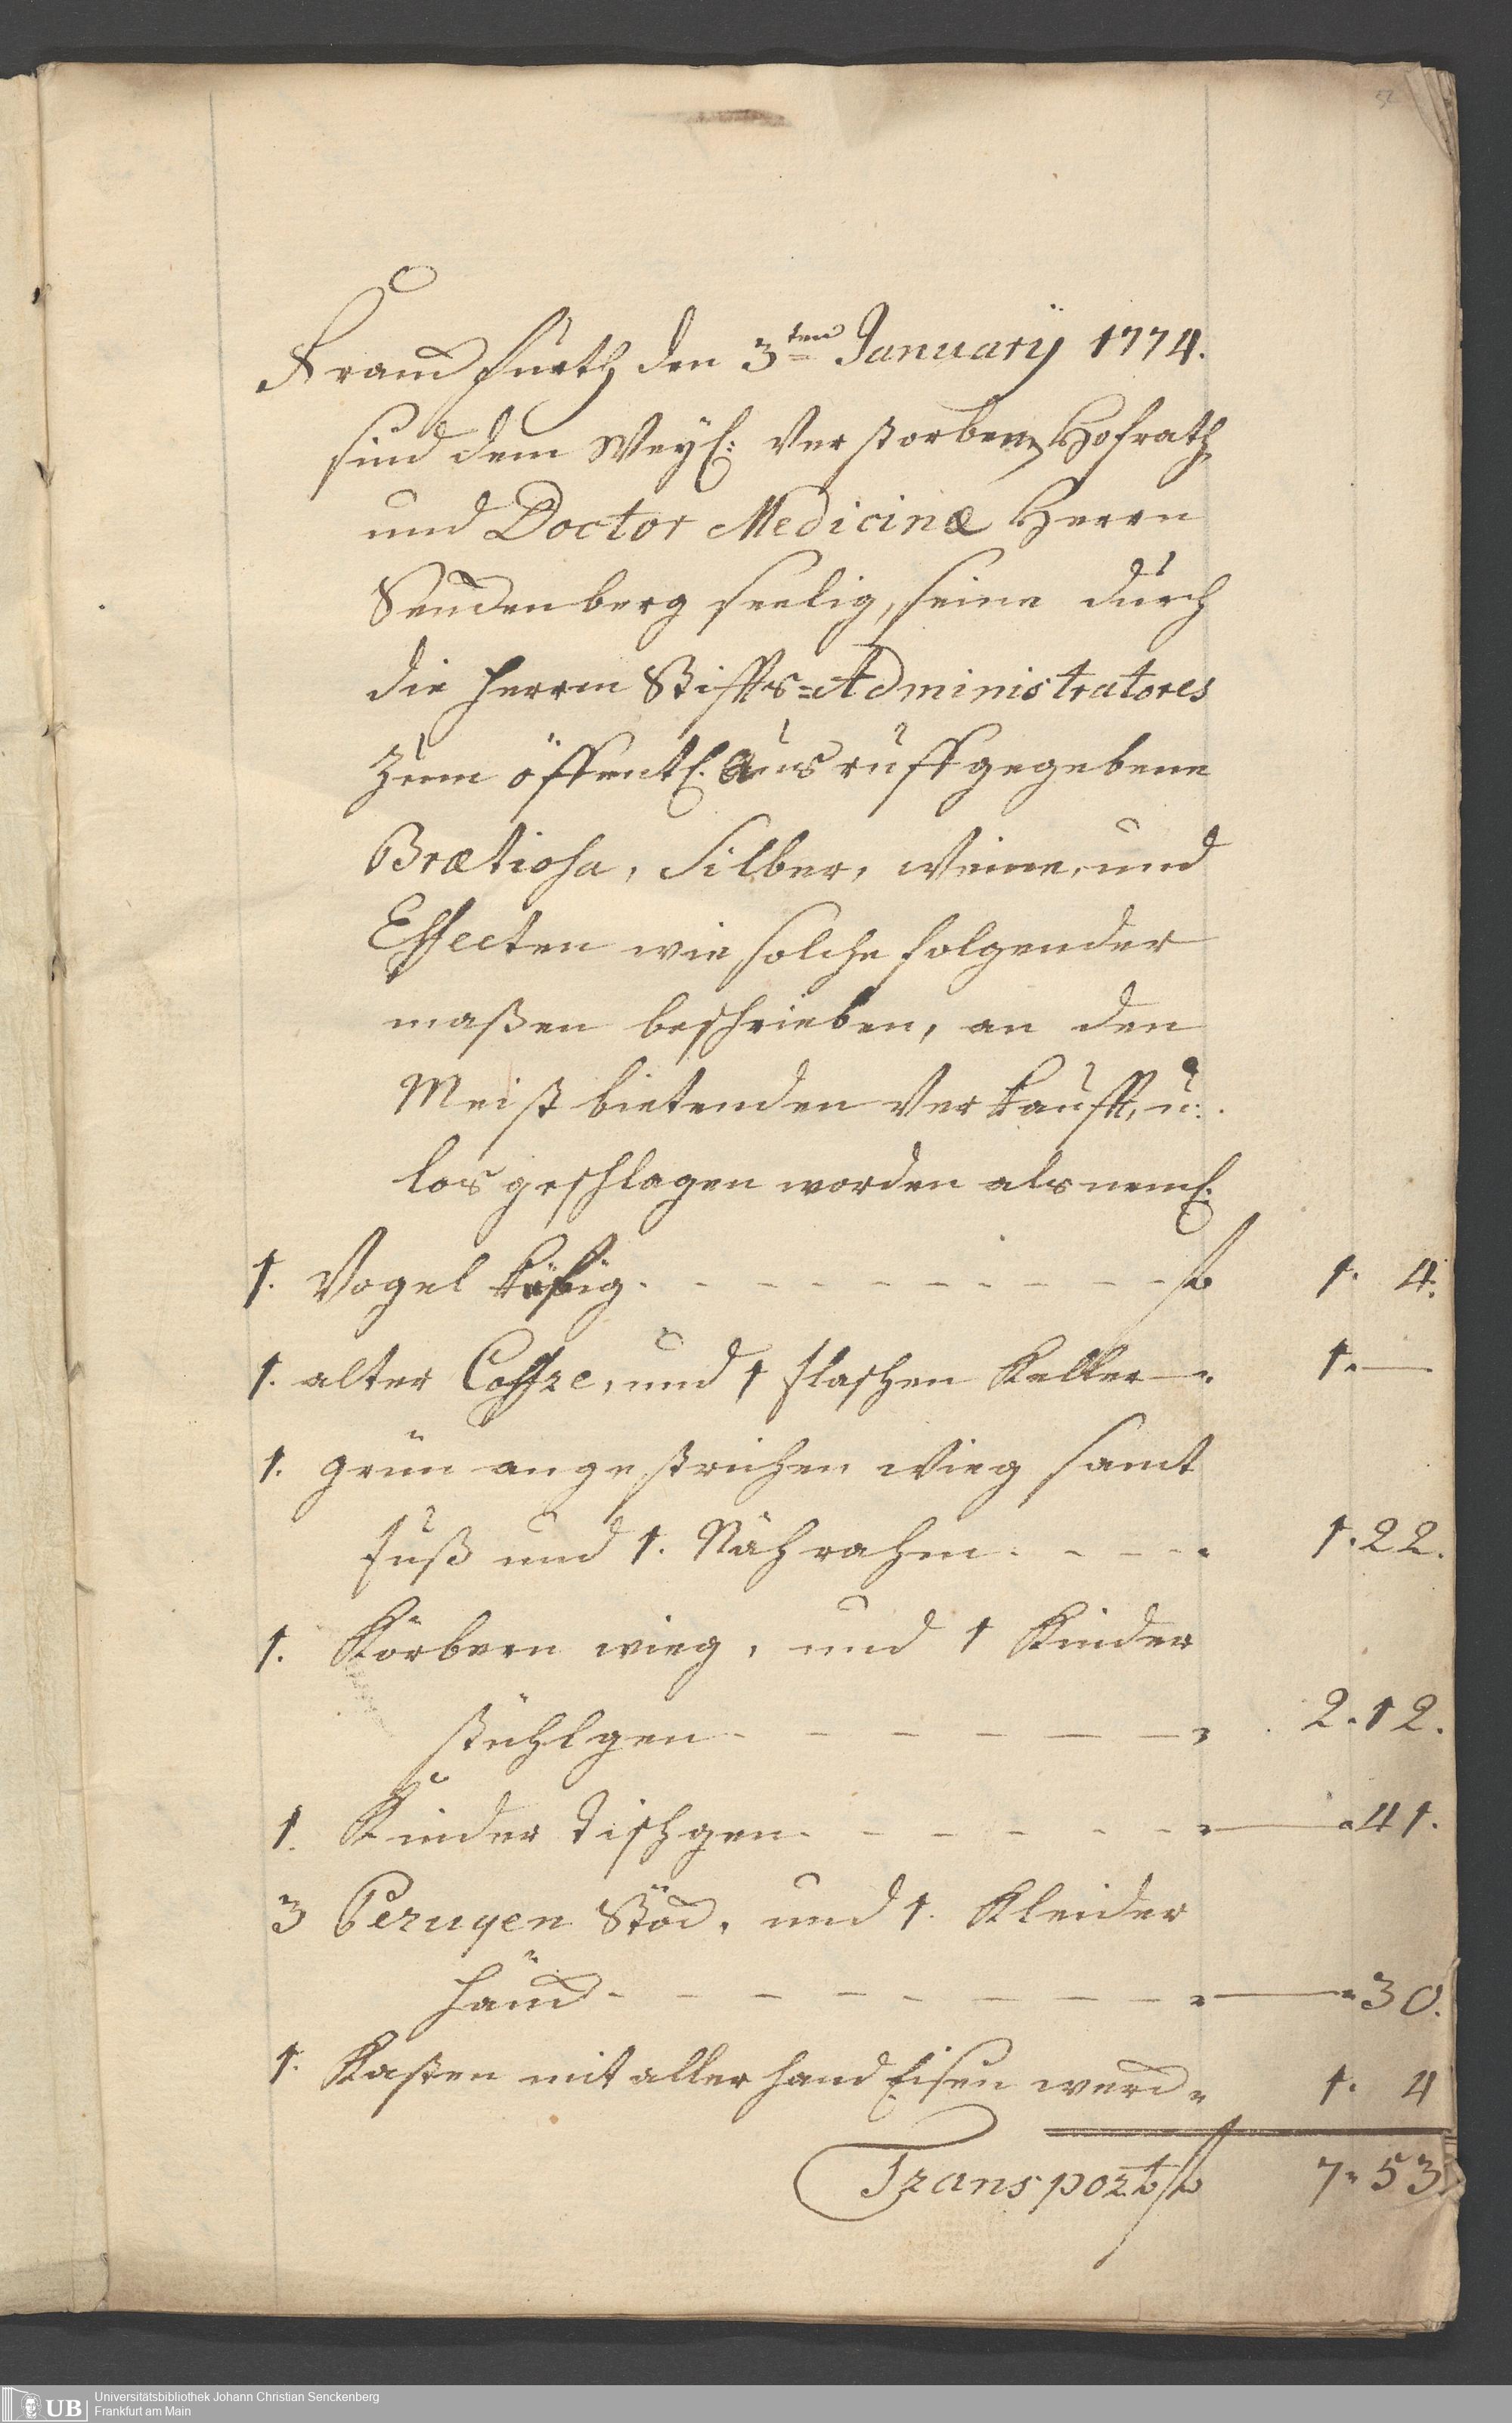 52
Franckfurth den 3ten January 1774.
sind dem Weyl: Verstorbenen Hofrath
und Doctor Medicinæ Herrn
Senckenberg seelig, seine durch
die Herrn Stiffts=Administratores
zum öffentl. Ausruff gegebene
Brætiosa, Silber, Weine, und
Effecten wie solche folgender
maßen beschrieben, an den
Meist bietenden Verkaufft, u.
los geschlagen worden als neml:
1. Vogel käfig. - - - - - - - - - f 1. 4.
1. alter Coffre, und 1 flaschen Keller " 1. —
1. grün angestrichen Wieg samt
fuß und 1. Nährahm. - - - " 1. 22.
1. Körbern wieg, und 1 Kinder
stühlgen - - - - - - " 2. 12.
1. Kinder Tischgen. - - - - - " — " 41.
3 Peruqen Stöck, und 1. Kleider
hänck - - - - - - - - " — " 30.
1. Kasten mit aller hand Eisen werck " 1. 4
Transport f 7. 53
UB
Universitätsbibliothek Johann Christian Senckenberg
Frankfurt am Main